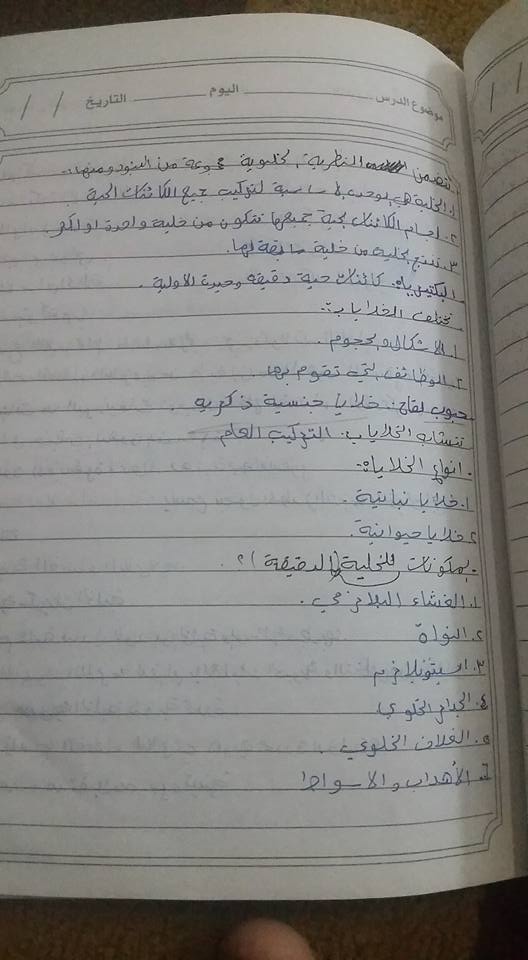 موضوع الدرس ـــــــ اليوم ـــــــ التاريخ / /
تتضمن النظرية الخلوية مجموعة من البنود ومنها:-
١. الخلية هي الوحدة الأساسية لتركيب جميع الكائنات الحية
٢. أجسام الكائنات الحية جميعها تتكون من خلية واحدة أو أكثر.
٣. تنتج الخلية من خلية سابقة لها.
البكتيريا: كائنات حية دقيقة وحيدة الأولية.
تختلف الخلايا بـ:-
١. الأشكال والحجوم.
٢. الوظائف التي تقوم بها
حبوب لقاح: خلايا جنسية ذكرية.
تتشابه الخلايا بـ: التركيب العام
- أنواع الخلايا:-
١. خلايا نباتية.
٢. خلايا حيوانية.
- مكونات الخلية (الدقيقة)؟.
١. الغشاء البلازمي.
٢. النواة
٣. السيتوبلازم
٤. الجدار الخلوي
٥. الغلاف الخلوي.
٦. الأهداب والأسواط